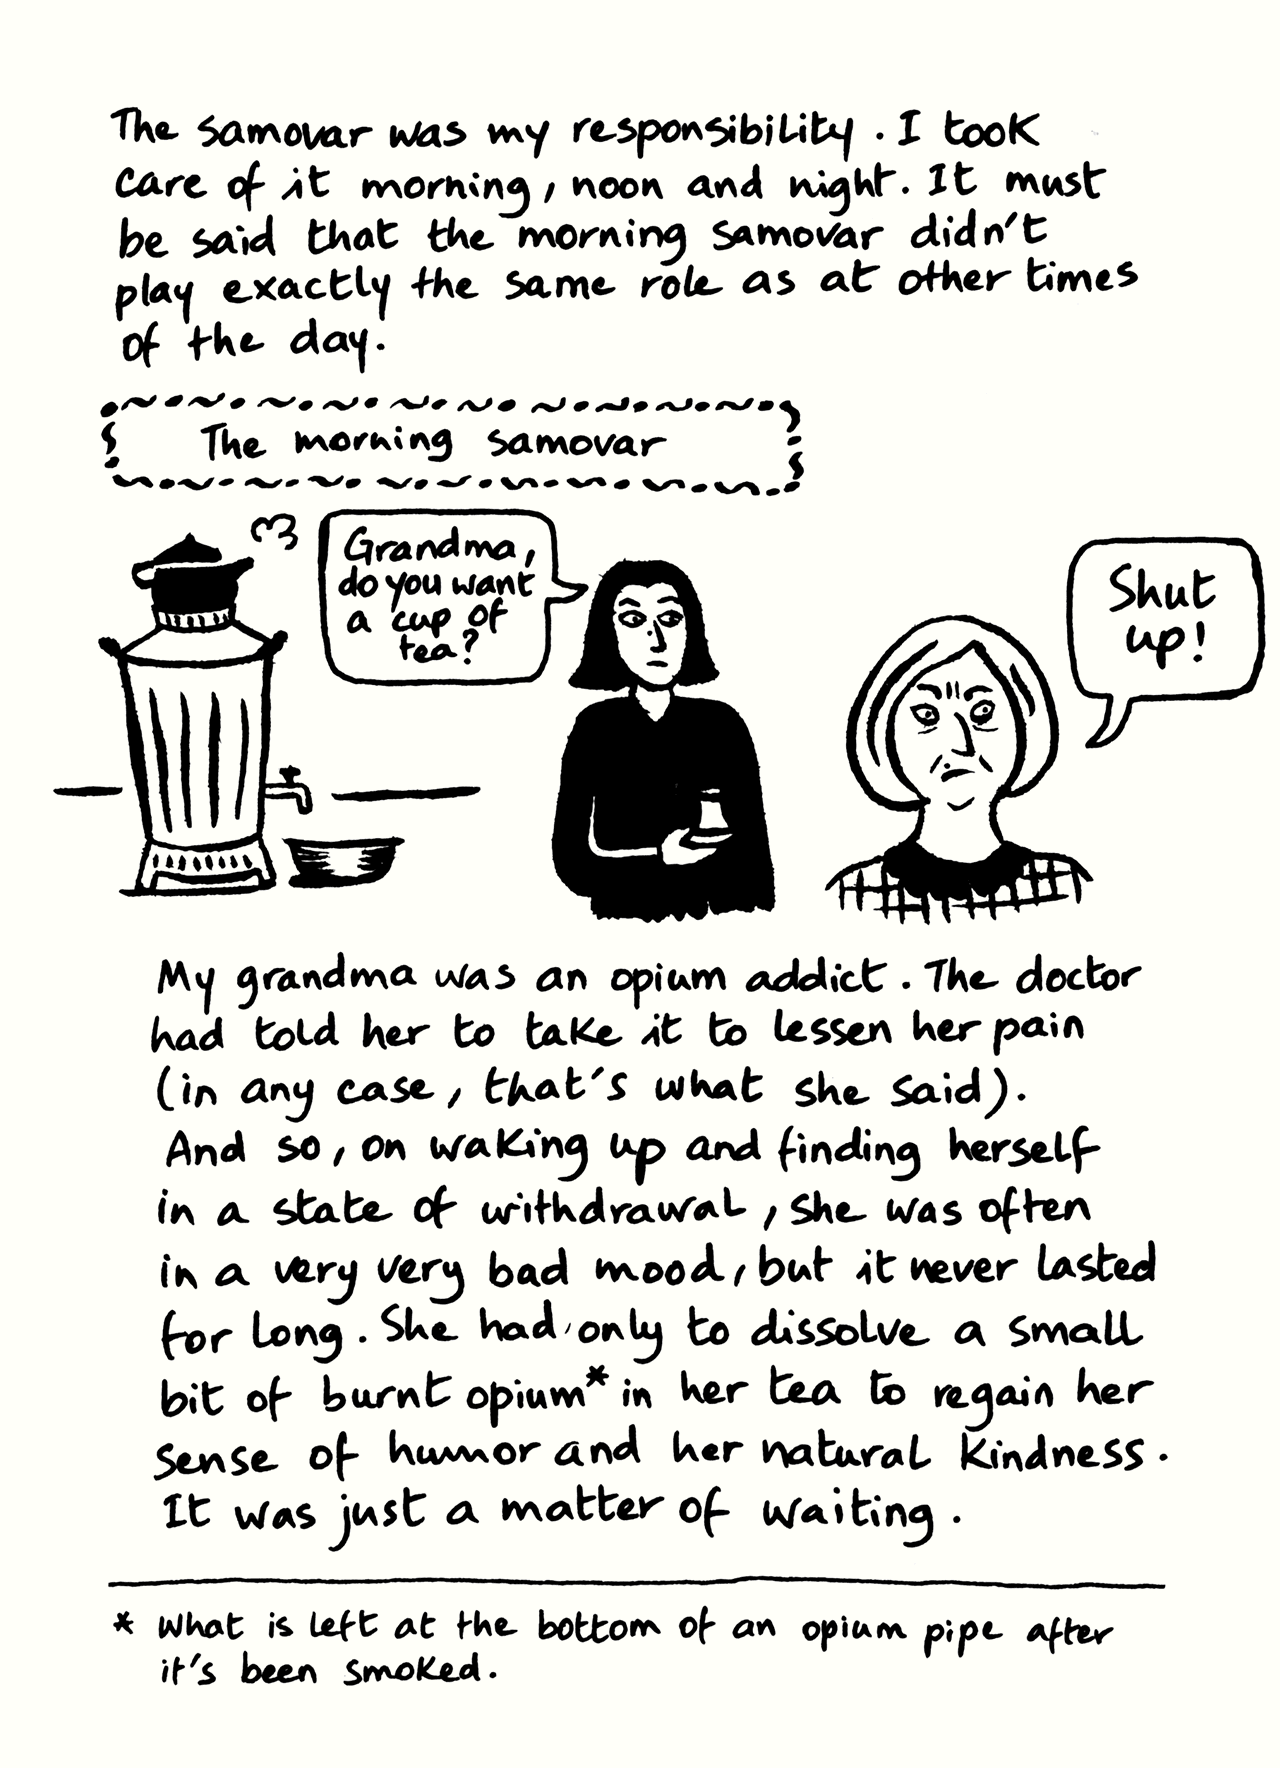 The samovar was my responsibility. I took
care of it morning, noon and night. It must
be said that the morning samovar didn't
play exactly the same role as at other times
of the day.
The morning samovar
Grandma,
do you want
a cup of
tea?
Shut
up!
My grandma was an opium addict. The doctor
had told her to take it to lessen her pain
(in any case, that's what she said).
And so, on waking up and finding herself
in a state of withdrawal, she was often
in a very very bad mood, but it never lasted
for long. She had only to dissolve a small
bit of burnt opium* in her tea to regain her
sense of humor and her natural kindness.
It was just a matter of waiting.
* What is left at the bottom of an opium pipe after
it's been smoked.